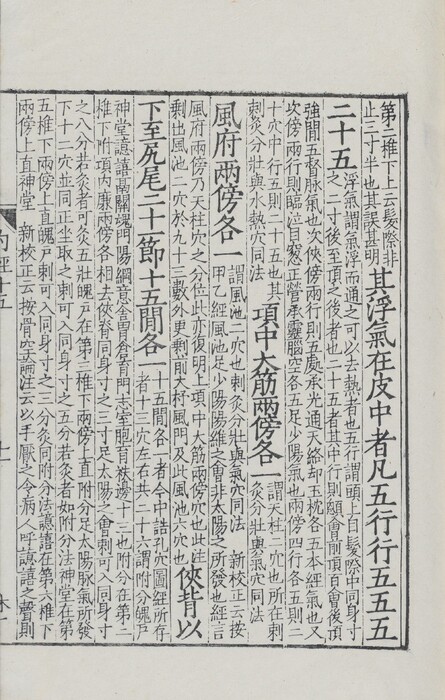 第二椎下上云髮際非
止三寸半也其誤甚明
其浮氣在皮中者凡五行行五五五
二十五
浮氣謂氣浮而通之可以去熱者也五行謂頭上自髮際中同身寸
之二寸後至項之後者也二十五者其中行則顖會前頂百會後頂
強間五督脉氣也次俠傍兩行則五處承光通天絡却玉枕各五本經氣也又
次傍兩行則臨泣目窻正營承靈腦空各五足少陽氣也兩傍四行各五則二
十穴中行五則二十五也其
刺灸分壯與水熱穴同法
項中大筋兩傍各一
謂天柱二穴也所在刺
灸分壯與氣穴同法
風府兩傍各一
謂風池二穴也刺灸分壯與氣穴同法 新校正云按
甲乙經風池足少陽陽維之會非太陽之所發也經言
風府兩傍乃天柱穴之分位此亦復明上項中大筋兩傍穴也此注
剩出風池二穴於九十三數外更剩前大杼風門及此風池六穴也
俠背以
下至尻尾二十一節十五間各一
十五間各一者今中誥孔穴圖經所存
者十三穴左右共二十六謂附分魄戶
神堂譩譆鬲關魂門陽綱意舍胃倉肓門志室胞肓秩邊十三也附分在第二
椎下附項內廉兩傍各相去俠脊同身寸之三寸足太陽之會刺可入同身寸
之八分若灸者可灸五壯魄戶在第三椎下兩傍上直附分足太陽脉氣所發
下十二穴並同正坐取之刺可入同身寸之五分若灸者如附分法神堂在第
五椎下兩傍上直魄戶刺可入同身寸之三分灸同附分法譩譆在第六椎下
兩傍上直神堂 新校正云按骨空論注云以手厭之令病人呼譩譆之聲則